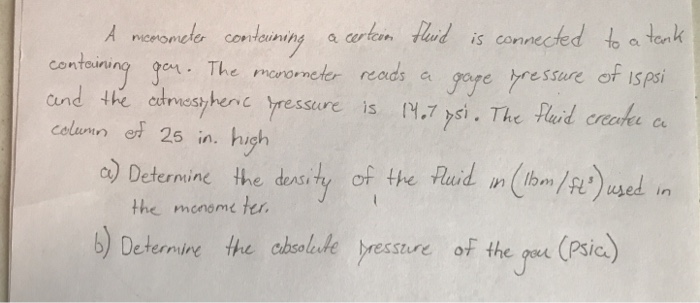 A manometer containing a certain fluid is connected to a tank
containing gas. The manometer reads a gage pressure of 15psi
and the atmospheric pressure is 14.7 psi. The fluid creates a
column of 25 in. high
a) Determine the density of the fluid in (lbm/ft³) used in
the manometer.
b) Determine the absolute pressure of the gas (psia)